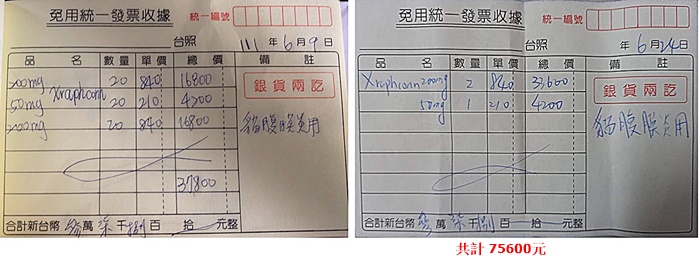 免用統一發票收據
統一編號
台照 111年6月9日
品名 數量 單價 總價 備註
200mg 20 840 16800
銀貨兩訖
50mg Xraphconn 20 210 4200
200mg 20 840 16800
貓腹膜炎用
37800
合計新台幣 參萬柒千捌百拾元整
免用統一發票收據
統一編號
台照 年6月24日
品名 數量 單價 總價 備註
Xraphconn 200mg 2 840 33600
銀貨兩訖
50mg 1 210 4200
貓腹膜炎用
合計新台幣 參萬柒千捌百拾元整
共計 75600元